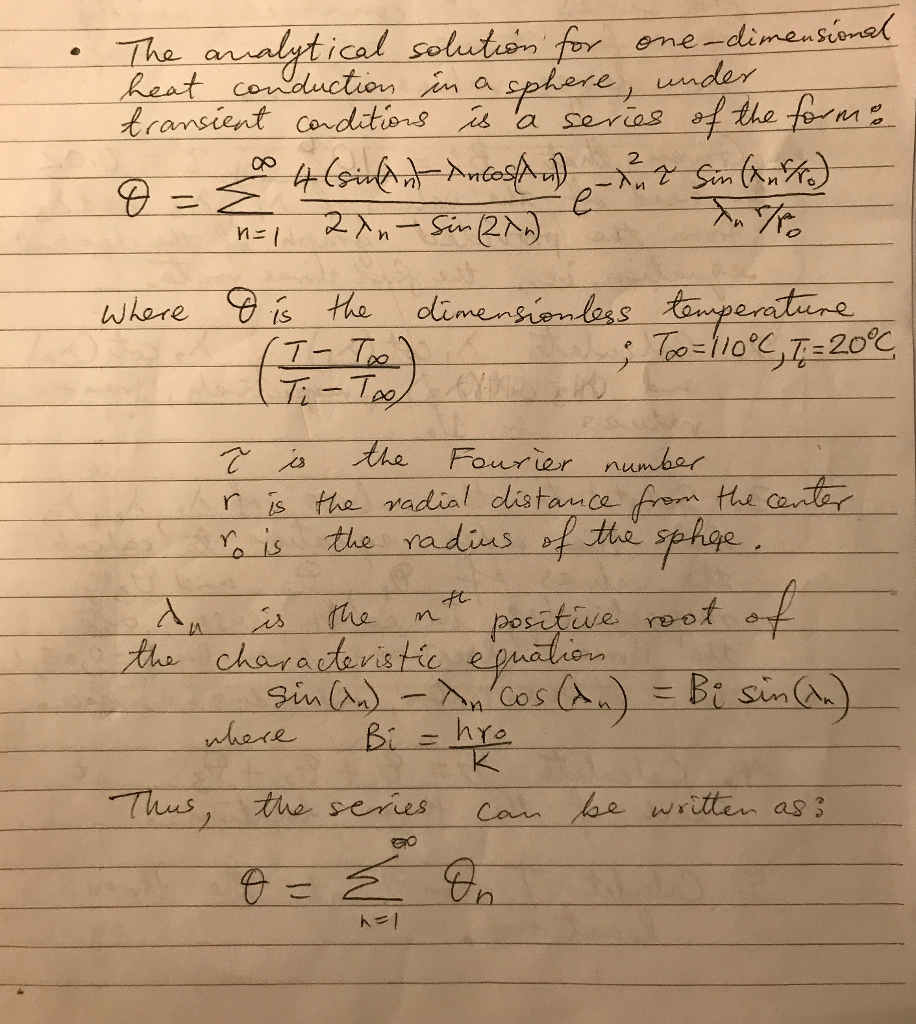 • The analytical solution for one-dimensional
heat conduction in a sphere, under
transient conditions is a series of the form:
θ = ∑_{n=1}^{∞} \frac{4(sin(λ_n) - λ_n cos(λ_n))}{2λ_n - sin(2λ_n)} e^{-λ_n^2 τ} \frac{sin(λ_n r/r_o)}{λ_n r/r_o}
where θ is the dimensionless temperature
(\frac{T - T_∞}{T_i - T_∞}) ; T_∞ = 110°C, T_i = 20°C
τ is the Fourier number
r is the radial distance from the center
r_o is the radius of the sphere.
λ_n is the n^{th} positive root of
the characteristic equation
sin(λ_n) - λ_n cos(λ_n) = Bi sin(λ_n)
where Bi = \frac{hr_o}{K}
Thus, the series can be written as:
θ = ∑_{n=1}^{∞} θ_n